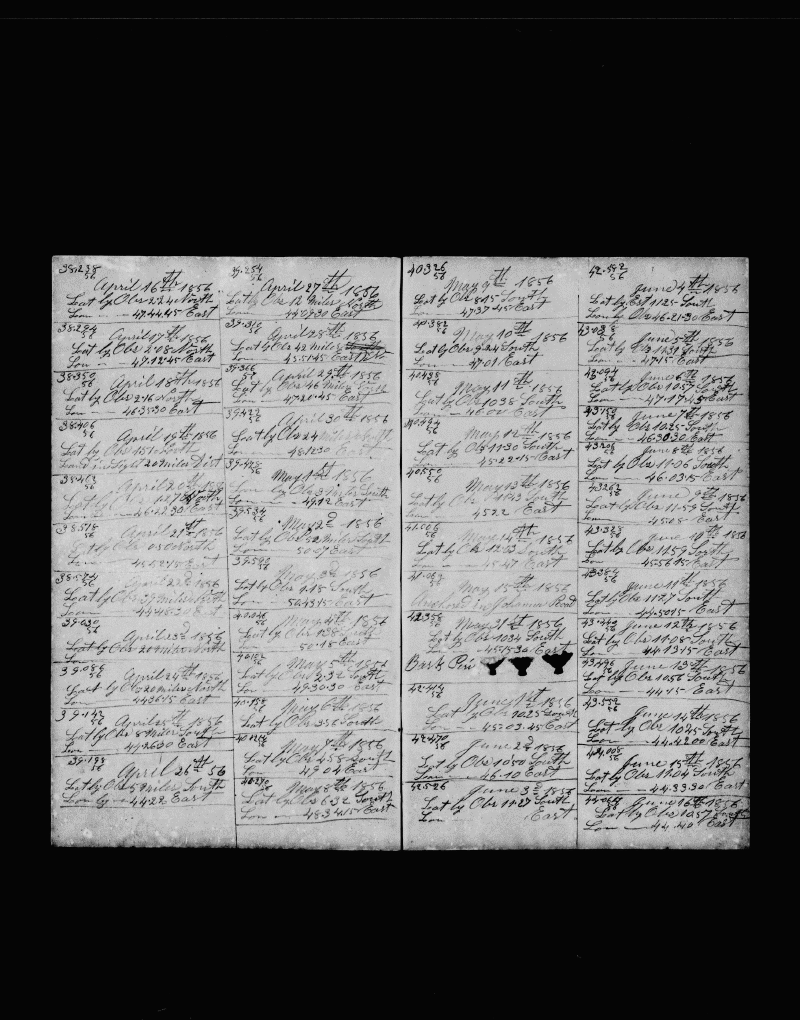 38.238
56
April 16th 1856
Lat by Obs 2.24 North
Lon - 47.44.45 East
38.294
56
April 17th 1856
Lat by Obs 2.08 North
Lon - 49.12.45 East
38.350
56
April 18th 1856
Lat by Obs 2.16 North
Lon - 46.35.30 East
38.406
56
April 19th 1856
Lat by Obs 1.51 North
Land in sight 20 miles Dist
56
April 20th 1856
Lat by Obs North
Lon - 46.22.30 East
38.518
56
April 21st 1856
Lat by Obs North
Lon - East
38.574
56
April 22d 1856
Lat by Obs miles North
Lon - 44.48.30 East
39.030
56
April 23d 1856
Lat by Obs 20 miles North
Lon -
39.086
56
April 24th 1856
Lat by Obs 20 miles North
Lon - 44.36.45 East
39.142
56
April 25th 1856
Lat by Obs 8 miles South
Lon - 44.26.30 East
39.198
56
April 26th 56
Lat by Obs 5 miles South
Lon by - 44.22 East
39.254
56
April 27th 1856
Lat by Obs 12 miles North
Lon - 44.29.30 East
39.310
56
April 28th 1856
Lat by Obs 42 miles
Lon - 45.51.45 East
39.366
56
April 29th 1856
Lat by Obs 46 miles
Lon - 47.20.45 East
39.422
56
April 30th 1856
Lat by Obs 24
Lon - 48.12.30 East
39.478
56
May 1st 1856
Lat by Obs miles South
Lon - 49.12 East
39.534
56
May 2d 1856
Lat by Obs 52 miles South
Lon - 50.07 East
39.590
56
May 3d 1856
Lat by Obs 1.15 South
Lon - 50.43.45 East
40.046
56
May 4th 1856
Lat by Obs 1.38 South
Lon - 50.18 East
40.102
56
May 5th 1856
Lat by Obs 2.32 South
Lon - 49.30.30 East
40.158
56
May 6th 1856
Lat by Obs 3.56 South
40.214
56
May 7th 1856
Lat by Obs 4.58 South
Lon - 49.04 East
40.270
56
May 8th 1856
Lat by Obs 6.32 South
Lon - 48.34.15 East
40.326
56
May 9th 1856
Lat by Obs 8.15 South
Lon - 47.37.45 East
40.382
56
May 10th 1856
Lat by Obs 9.24 South
Lon - 47.01 East
40.438
56
May 11th 1856
Lat by Obs 10.38 South
Lon - 46.02 East
40.494
56
May 12th 1856
Lat by Obs 11.30 South
Lon - 45.22.15 East
40.550
56
May 13th 1856
Lat by Obs South
Lon - 45.22 East
41.006
56
May 14th 1856
Lat by Obs 12.53 South
Lon - 45.47 East
41.062
56
May 15th 1856
Anchored in Johanna Road
42.358
56
May 31st 1856
Lat by Obs 10.34 South
Lon - 45.15.30 East
Bark
42.414
56
June 1st 1856
Lat by Obs 10.25 South
Lon - 45.03.45 East
42.470
56
June 2d 1856
Lat by Obs 10.50 South
Lon - 46.10 East
42.526
56
June 3d 1856
Lat by Obs 11.27 South
Lon - East
42.582
56
June 4th 1856
Lat by Est 11.25 South
Lon by Obs 46.21.30 East
43.038
56
June 5th 1856
Lat by Obs 11.31 South
Lon - 47.15 East
43.094
56
June 6th 1856
Lat by Obs 10.57 South
Lon - 47.17.45 East
43.150
56
June 7th 1856
Lat by Obs 10.25 South
Lon - 46.30.30 East
43.206
56
June 8th 1856
Lat by Obs 11.06 South
Lon - 46.03.15 East
43.262
56
June 9th 1856
Lat by Obs 11.59 South
Lon - 45.08 East
43.328
56
June 10th 1856
Lat by Obs 11.59 South
Lon - 45.56.15 East
43.384
56
June 11th 1856
Lat by Obs 11.27 South
Lon - 44.50.15 East
43.440
56
June 12th 1856
Lat by Obs 11.08 South
Lon - 44.13.15 East
43.496
56
June 13th 1856
Lat by Obs 10.56 South
Lon - 44.15 East
43.552
56
June 14th 1856
Lat by Obs 10.45 South
Lon - 44.42.00 East
44.008
56
June 15th 1856
Lat by Obs 11.04 South
Lon - 44.33.30 East
44.064
56
June 16th 1856
Lat by Obs 10.57 South
Lon - 44.40 East